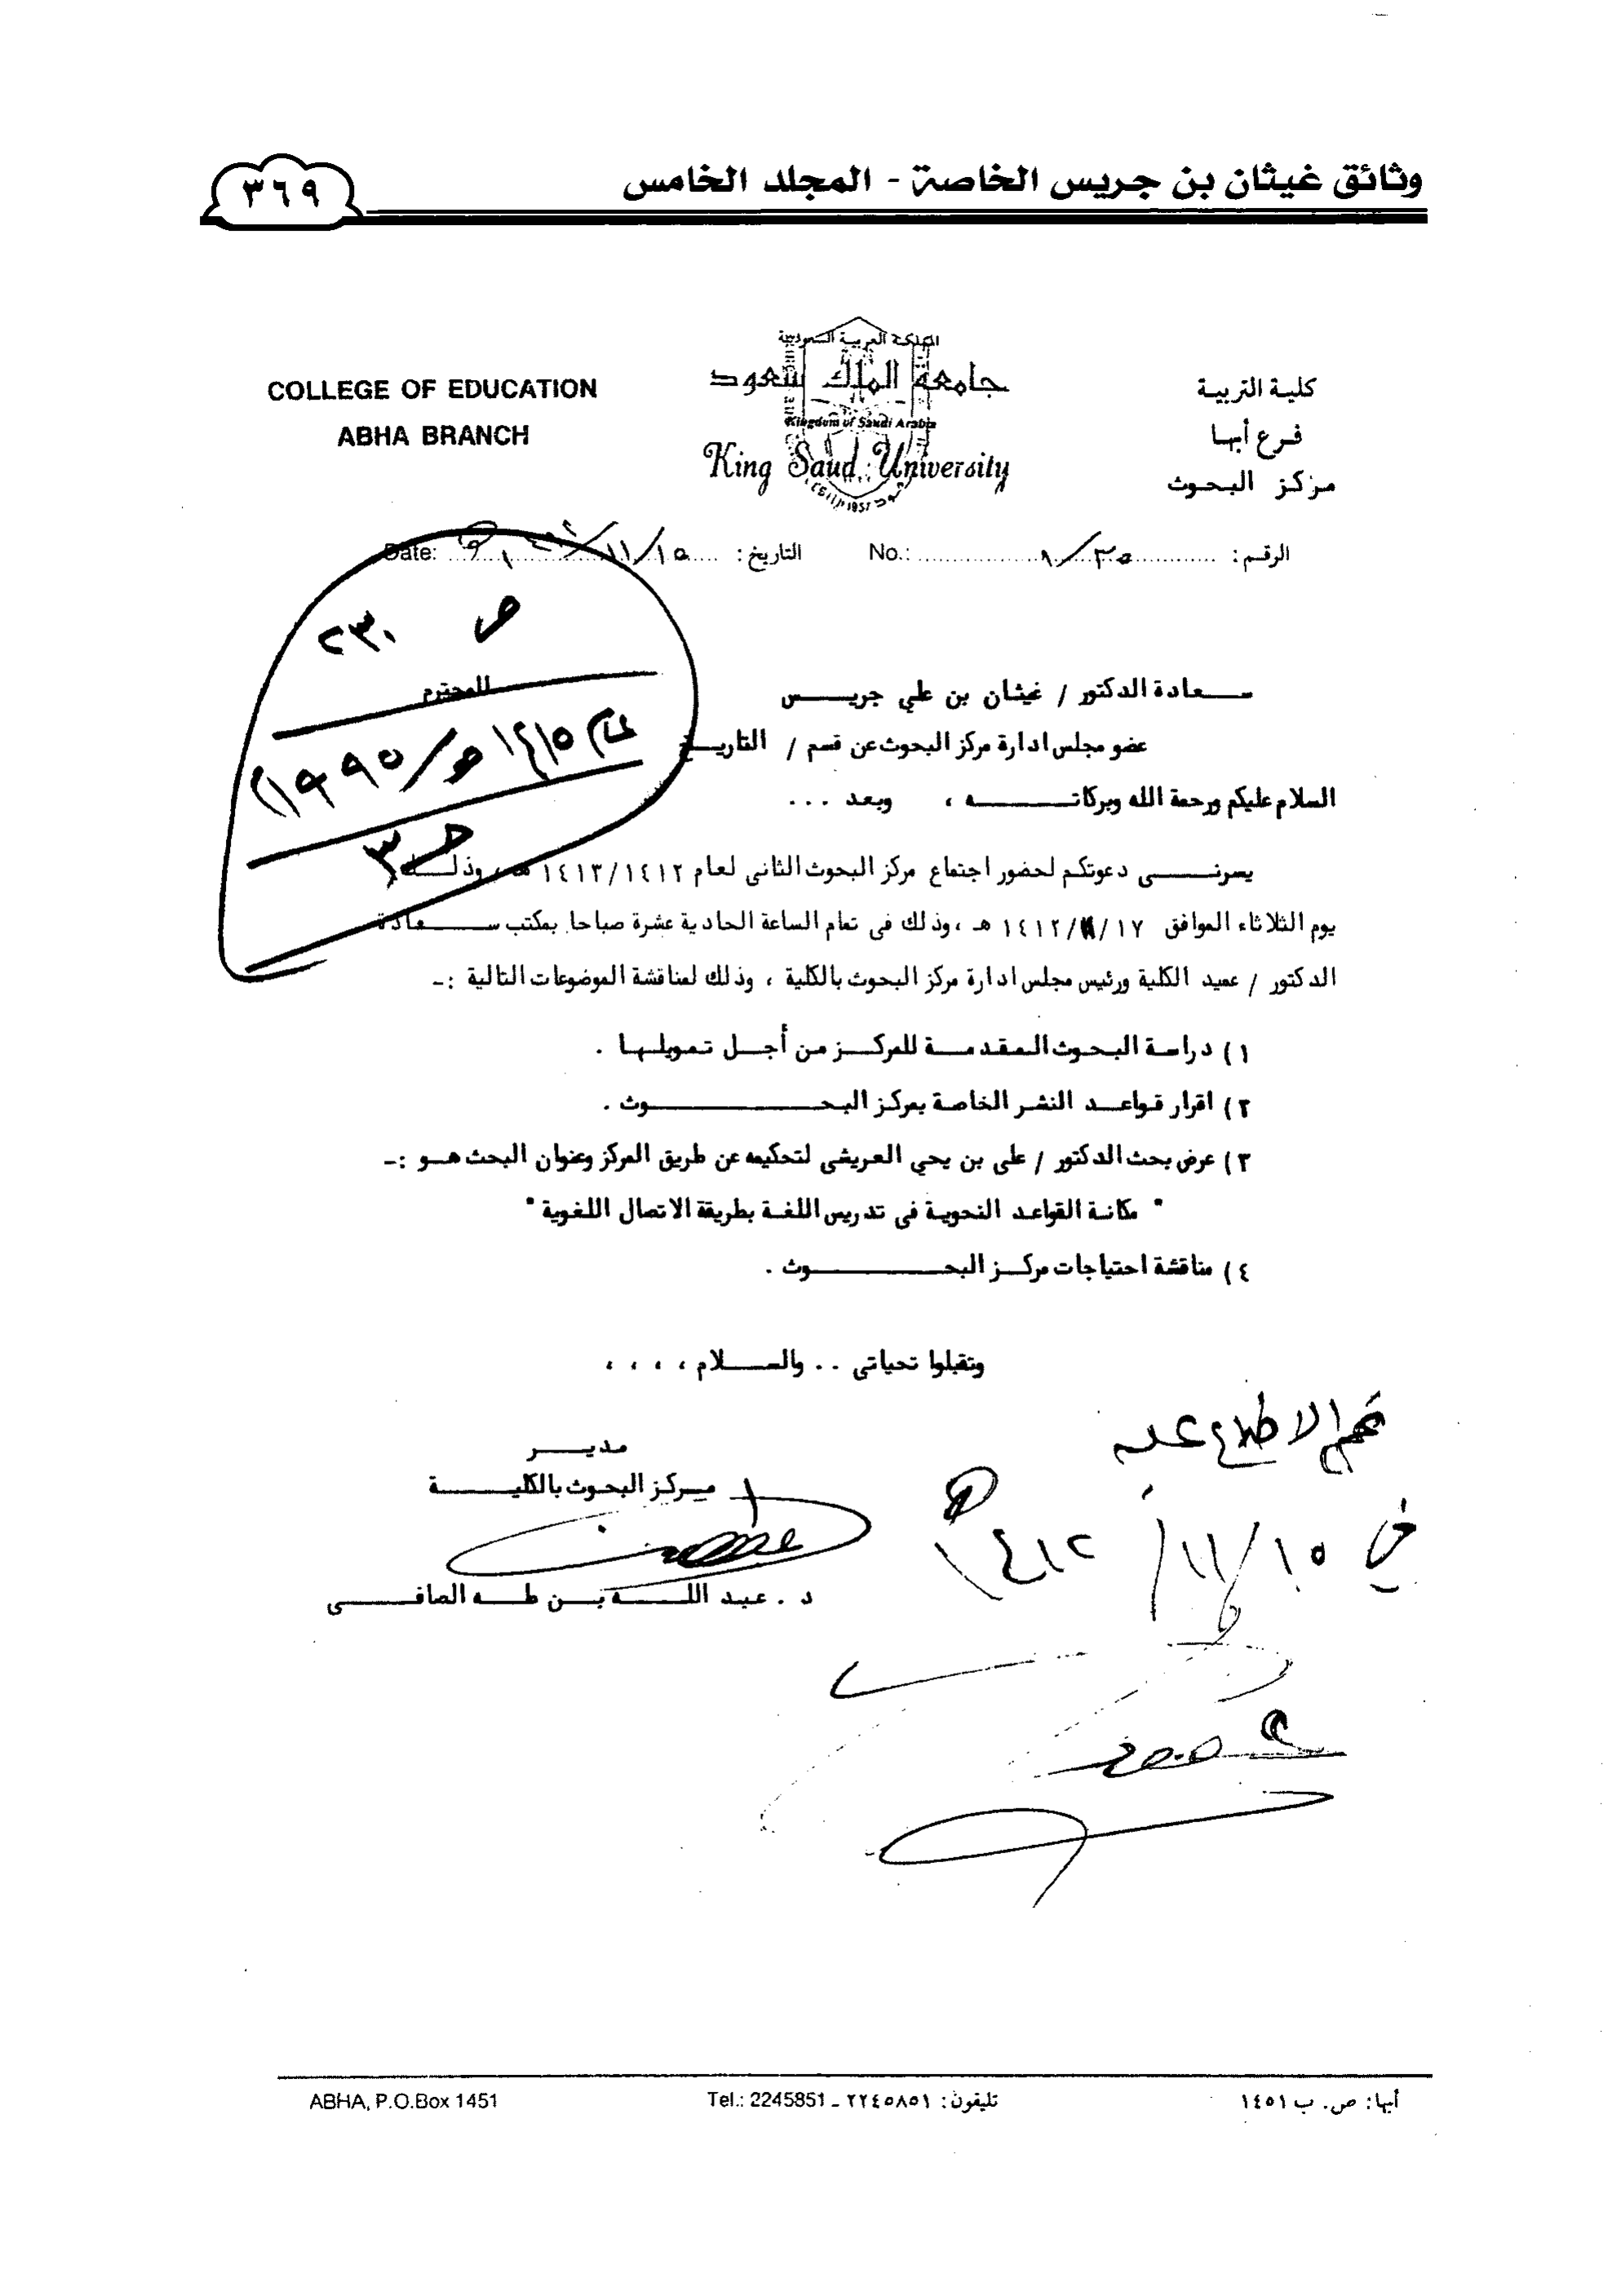 وثائق غيثان بن جريس الخاصة - المجلد الخامس
٣٦٩
كلية التربية
فرع أبها
مركز البحوث
المملكة العربية السعودية
جامعة الملك سعود
Kingdom of Saudi Arabia
King Saud University
1957
COLLEGE OF EDUCATION
ABHA BRANCH
الرقم: ٨/٣٥ No.:
التاريخ: ١٥/١١/ Date:
ص ٢٣٠
عام ١٤١٥هـ/١٩٩٥م
حـ ٣
سعادة الدكتور / غيثان بن علي جريس المحترم
عضو مجلس ادارة مركز البحوث عن قسم / التاريخ
السلام عليكم ورحمة الله وبركاته ، وبعد ...
يسرنى دعوتكم لحضور اجتماع مركز البحوث الثانى لعام ١٤١٣/١٤١٢ هـ ، وذلك
يوم الثلاثاء الموافق ١٤١٢/١١/١٧ هـ ، وذلك فى تمام الساعة الحادية عشرة صباحا بمكتب سعادة
الدكتور / عميد الكلية ورئيس مجلس ادارة مركز البحوث بالكلية ، وذلك لمناقشة الموضوعات التالية :-
١) دراسة البحوث المقدمة للمركز من أجل تمويلها .
٢) اقرار قواعد النشر الخاصة بمركز البحوث .
٣) عرض بحث الدكتور / على بن يحي العريشى لتحكيمه عن طريق المركز وعنوان البحث هو :-
" مكانة القواعد النحوية فى تدريس اللغة بطريقة الاتصال اللغوية "
٤) مناقشة احتياجات مركز البحوث .
وتقبلوا تحياتى .. والسلام ، ، ، ،
مدير
مركز البحوث بالكلية
د . عبد الله بن طه الصافى
تم الاطلاع عليه
في ١٥/١١/١٤١٢هـ
أبها: ص. ب ١٤٥١
تليفون: ٢٢٤٥٨٥١ - Tel.: 2245851
ABHA, P.O.Box 1451